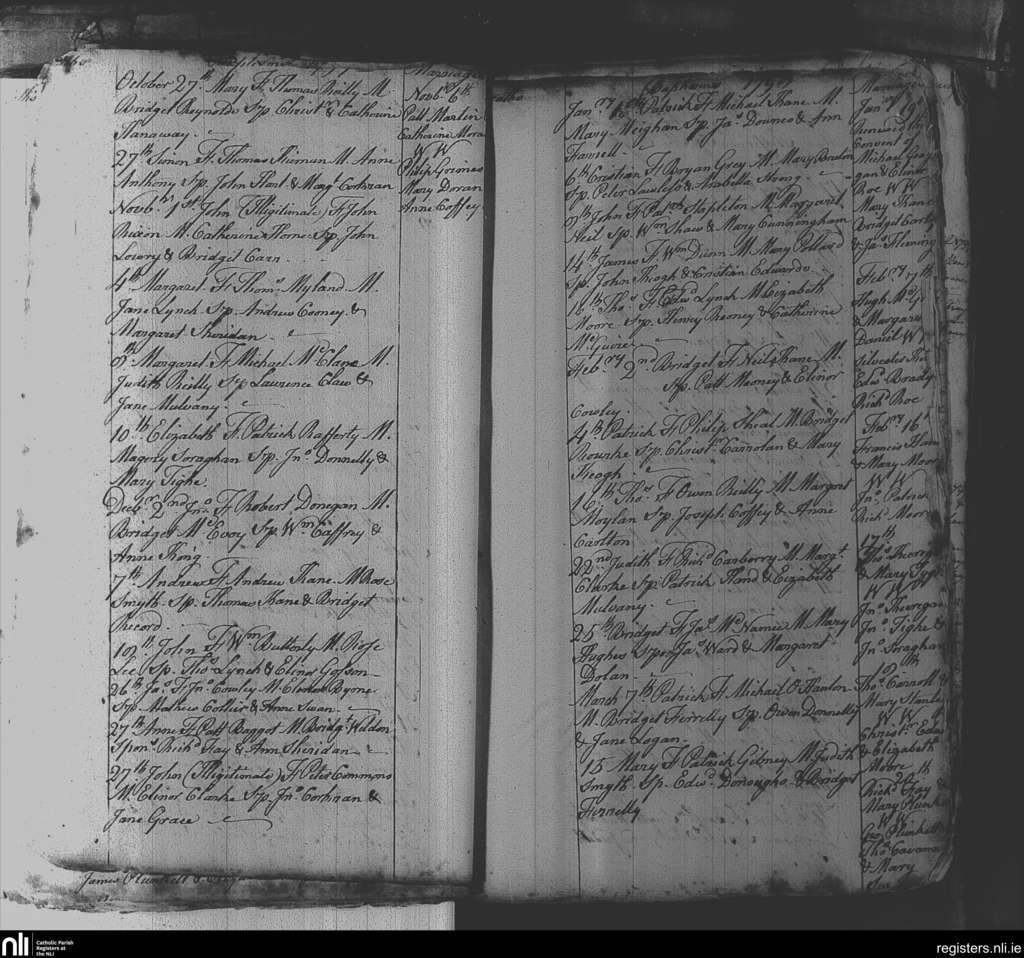 October 27th Mary F. Thomas Reilly M.
Bridget Reynolds Sp Christr & Catherine
Hanaway.
27th Simon F. Thomas Kiernan M. Anne
Anthony Sp. John Hart & Margt Cochran
Novbr 1st John (Illigitimate) F John
Nixon M. Catherine Horne Sp. John
Lowry & Bridget Carn.
4th Margaret F. Thoms Myland M.
Jane Lynch Sp. Andrew Cooney &
Margaret Sheridan
Margaret F. Michael Mc Clane M.
Judith Reilly Sp Lawrence Claw &
Jane Mulvany.
10th Elizabeth F. Patrick Rafferty M.
Magery Soraghan Sp. Jno Donnelly &
Mary Tighe.
Decbr 2nd Jno F Robert Donegan M.
Bridget Mc Evoy Sp Wm Caffray &
Anne Kong.
7th Andrew F. Andrew Kane M Rose
Smyth Sp. Thomas Kane & Bridget
Record.
John F. Wm Butterly M. Rose
Lee Sp. Thos Lynch & Elinor
26th Jas F. Jno Cowley M. Byone
Sp Mathew Collier & Anne Swan
27th Anne F. Patt Baggot M. Bridgt Weldon
Sponr Richd Gay & Ann Sheridan
27th John (Illigitimate) F. Peter Cummons
M. Elinor Clarke Sp. Jno Corhran &
Jane Grace
James Plunkett &
Marriages
Novbr 6th
Patt Martin
Catherine Mora
W W
Philip Grimes
Mary Doran
Anne Coffey
Baptisms
Janry Patrick F Michael Kane M.
Mary Meighan Sp. Jas Downes & Ann
Farrell
6th Cristian F Bryan Grey M. Mary
Sp. Peter Lawless & Arabella Strong
John F. Patk Stapleton M. Margaret
Neil Sp. Wm Shaw & Mary Cunningham
14th James F. Wm Dunn M. Mary Pollard
Sp. John Keogh & Cristian Edwards
16th Thos F. Edwd Lynch M. Elizabeth
Moore Sp. Henry Reoney & Catherine
Mc Guire
Febry 2nd Bridget F. Neil Kane M.
Sp. Patt Meoney & Elinor
Cowley.
4th Patrick F. Philip Sheal M. Bridget
Rourke Sp. Christr Carrolan & Mary
Keogh.
Thos F Owen Reilly M. Margaret
Moylan Sp. Joseph Coffey & Anne
Carlton
22nd Judith F. Richd Canberry M. Margt
Clarke Sp. Patrick Hand & Elizabeth
Mulvany.
25th Bridget F. Jas Mc Namee M. Mary
Hughes Spr Jas Ward & Margaret
Dolan.
March 7th Patrick F. Michael O'Hanlon
M. Bridget Ferrelly Sp. Owen Donnelly
& Jane Logan.
15 Mary F. Patrick Gibney M. Judith
Smyth Sp. Edwd Donougho & Bridget
Ferrelly
Janry 19th
Renewed the
Consent of
Michael
& Elinor
Roe W W
Mary Kane
Bridget
& Jas Fleming
Febry 7th
Hugh
& Margaret
Daniel W
Silvester
Edwd Brady
Richd Roe
Febry 16th
Francis
& Mary Moor
W W
Jno
Richd Moore
17th
Thos
& Mary
W W
Jno
Jno Tighe &
Jno Soraghan
Thos Carroll &
Mary Stanley
W W
Christr
& Elizabeth
Moore
Richd Gay &
Mary Plunk
W W
Geo Plunkett
Thos Cavana
& Mary
nli
Catholic Parish
Registers at
the NLI
registers.nli.ie